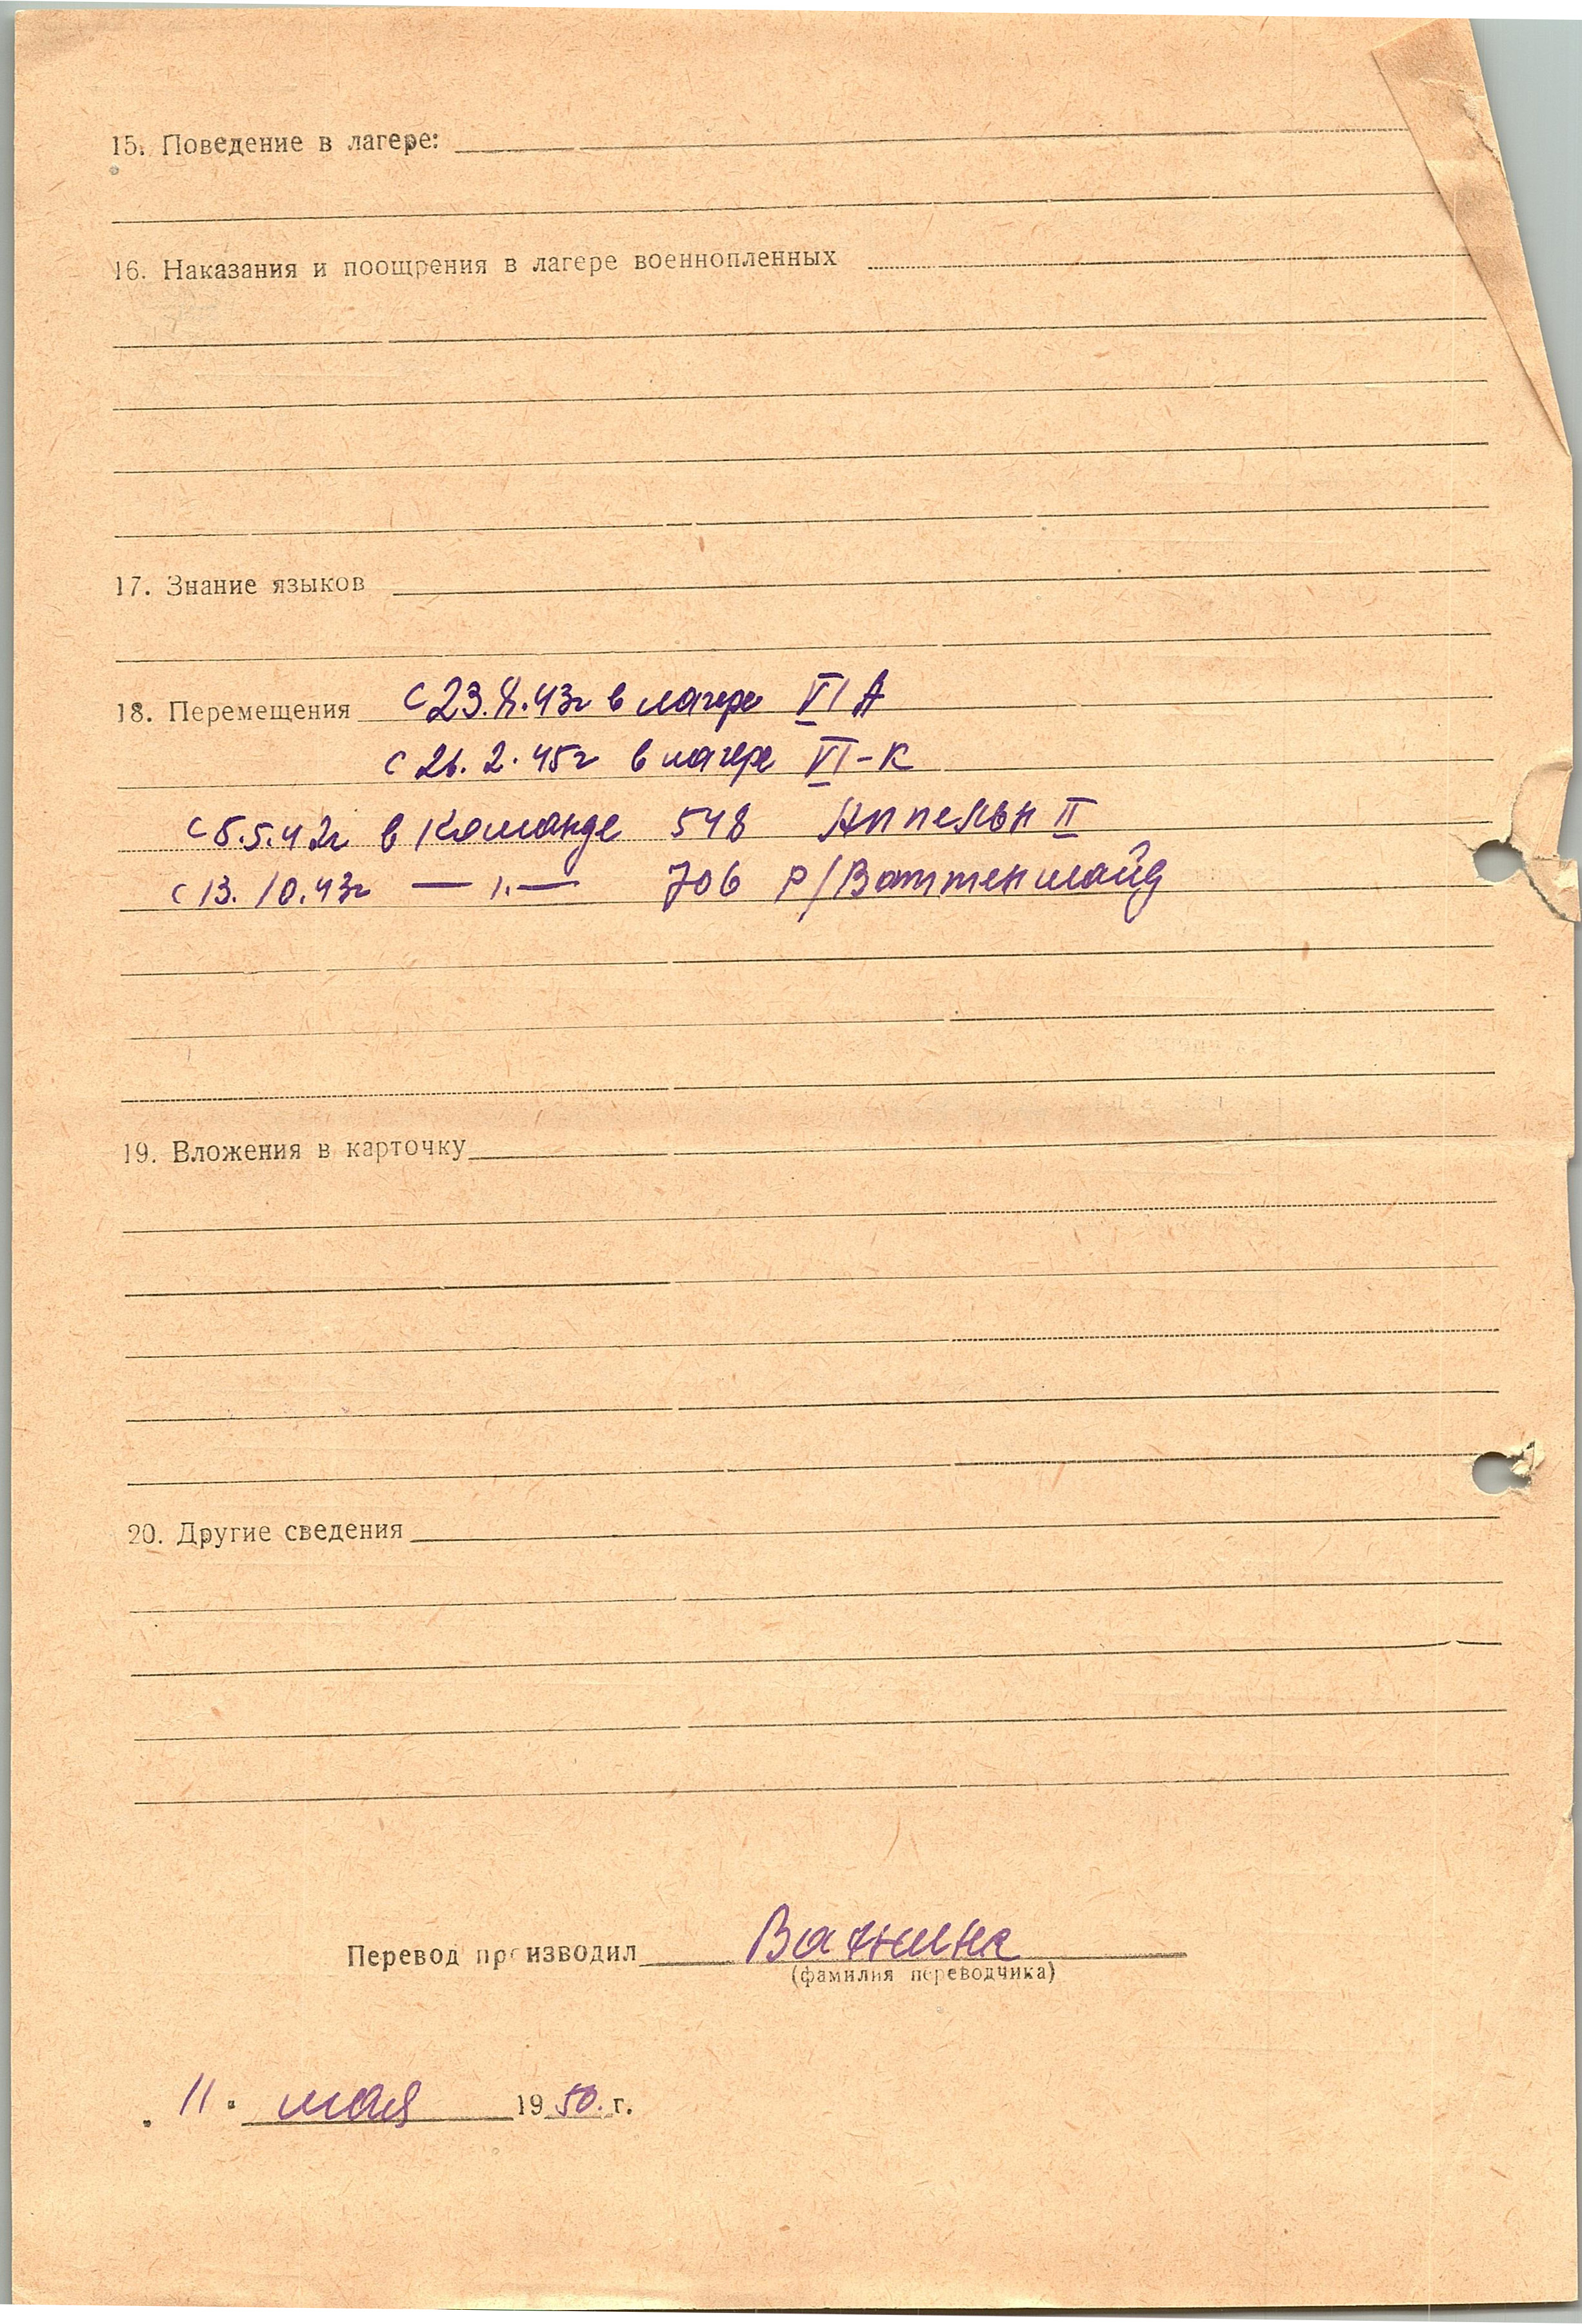 15. Поведение в лагере:
16. Наказания и поощрения в лагере военнопленных
17. Знание языков
18. Перемещения с 23.8.43г в лагере VI A
с 26.2.45г в лагере VI-К
с 5.5.42г в команде 548 Аппельн II
с 13.10.43г — „ — 706 Р/Ваттеншайд
19. Вложения в карточку
20. Другие сведения
Перевод производил Ванина
(фамилия переводчика)
„ 11 " мая 1950. г.